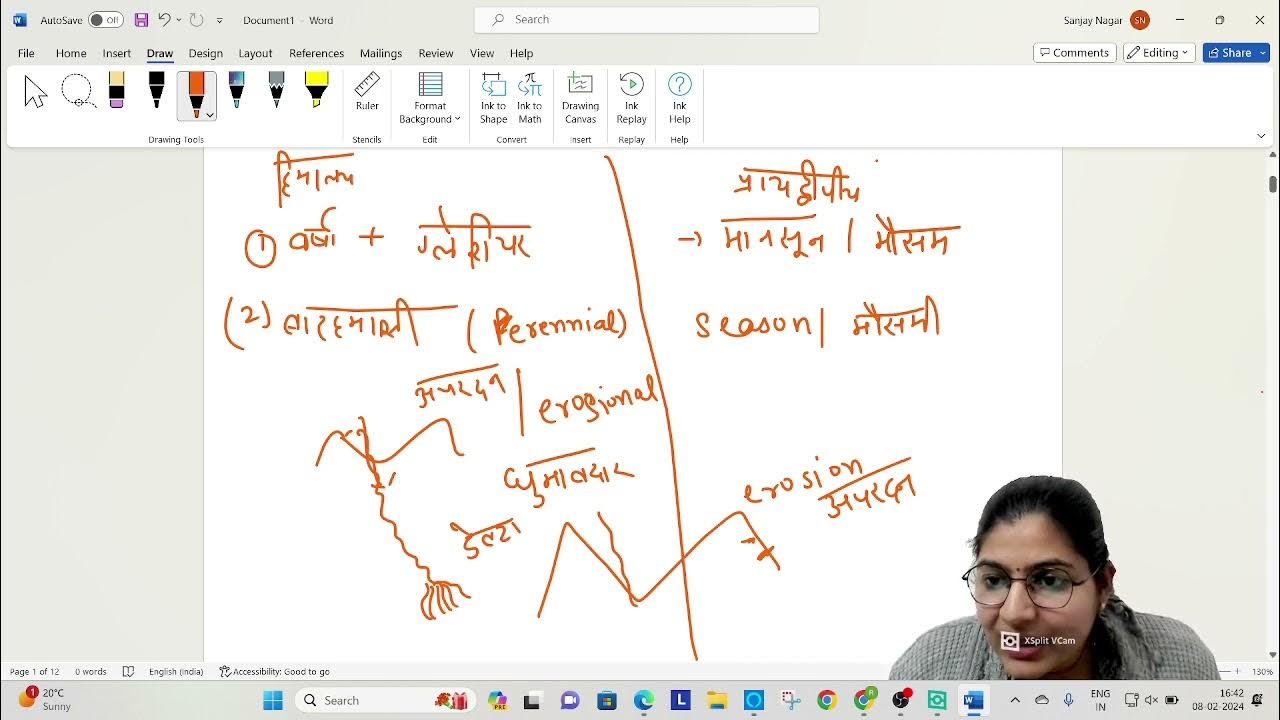 AutoSave Off Document1 - Word Search Sanjay Nagar SN
File Home Insert Draw Design Layout References Mailings Review View Help Comments Editing Share
Ruler Format Background Ink to Shape Ink to Math Drawing Canvas Ink Replay Ink Help
Drawing Tools Stencils Edit Convert Insert Replay Help
हिमालय
प्रायद्वीपीय
① वर्षा + ग्लेशियर
→ मानसून / मौसम
(2) बारहमासी (Perennial)
season / मौसमी
अपरदन / erosional
घुमावदार
erosion
अपरदन
डेल्टा
XSplit VCam
Page 1 of 12 0 words English (India) Accessibility: Good to go 130%
1 20°C Search ENG IN 08-02-2024